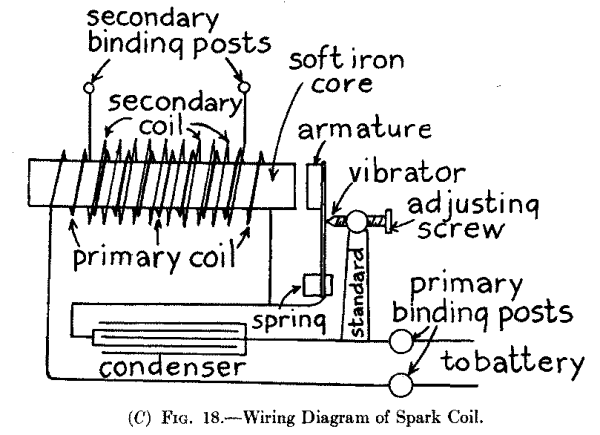 secondary
binding posts
soft iron
core
secondary
coil
armature
vibrator
adjusting
screw
primary coil
standard
spring
primary
binding posts
condenser
to battery
(C) FIG. 18.—Wiring Diagram of Spark Coil.